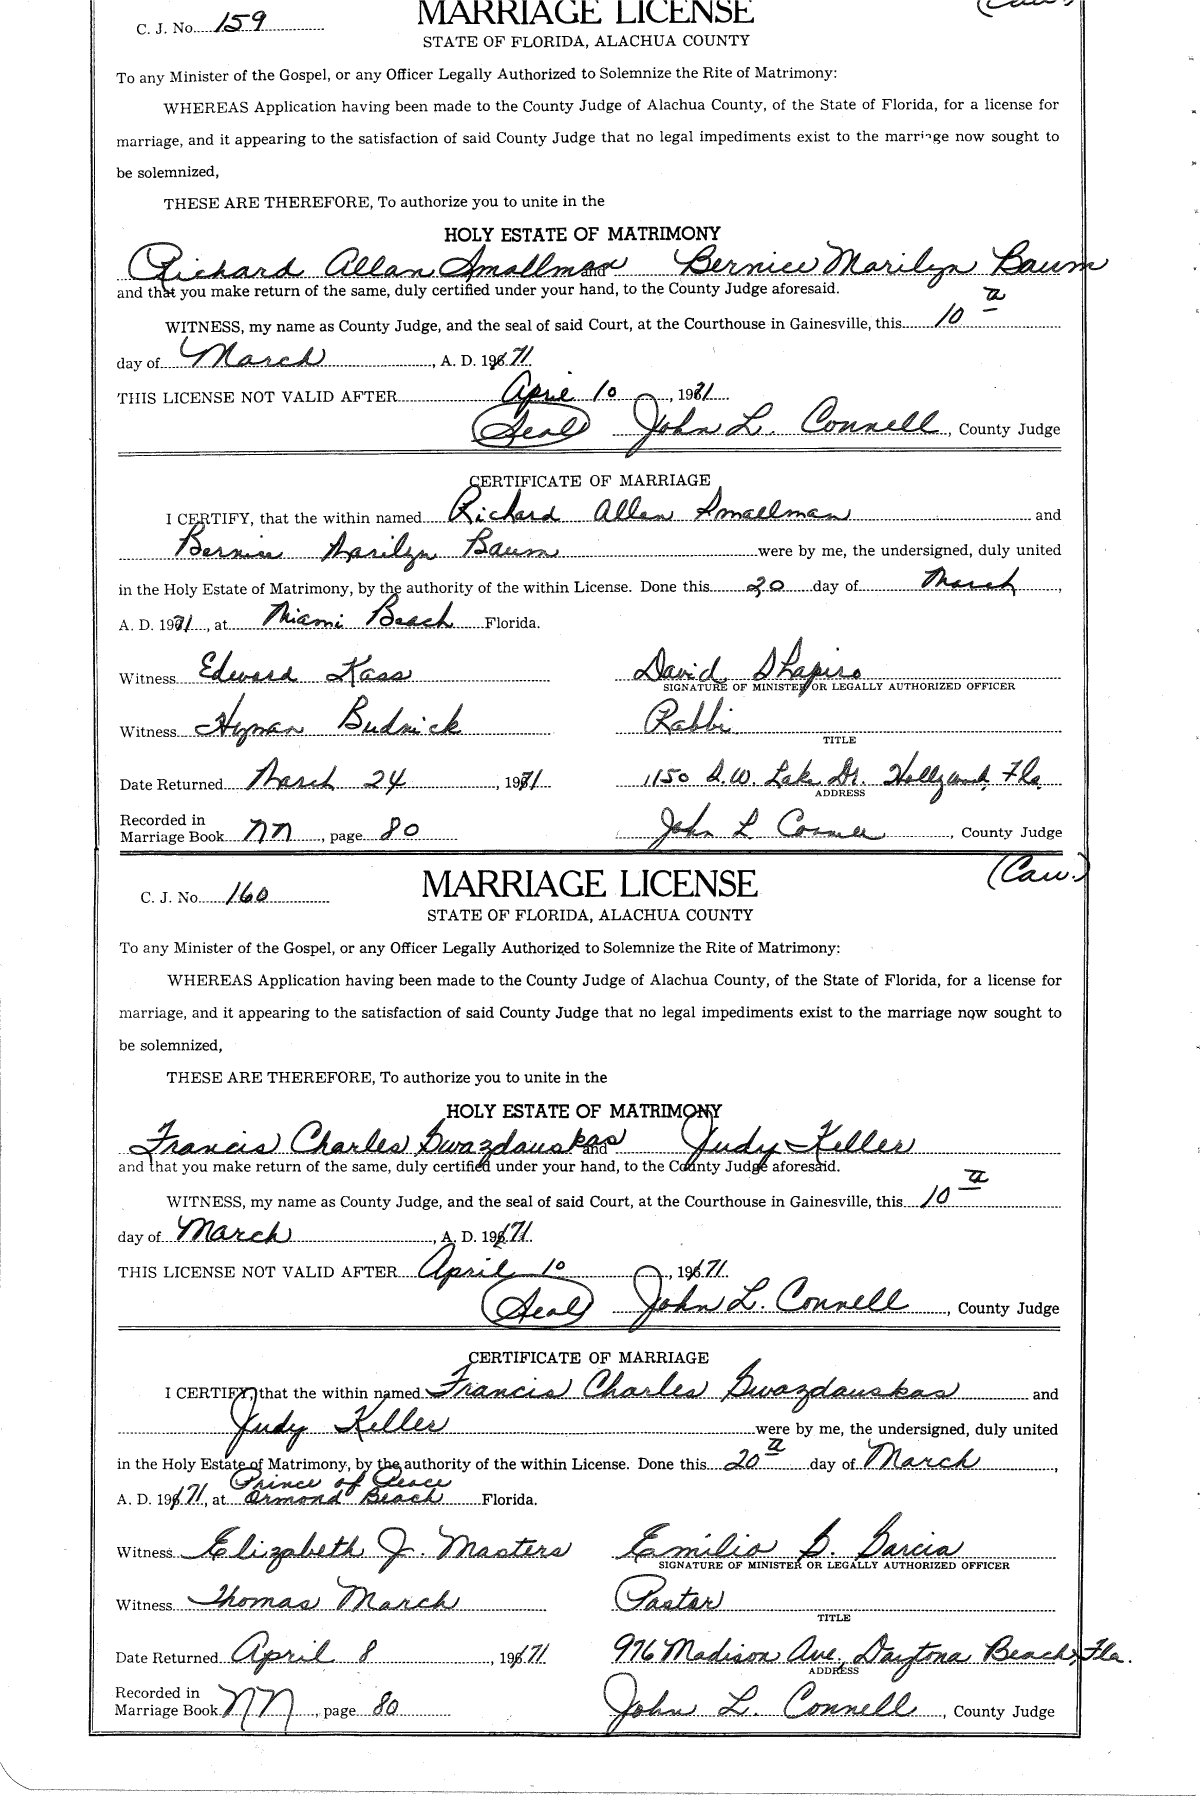 C. J. No. 159
MARRIAGE LICENSE
STATE OF FLORIDA, ALACHUA COUNTY
To any Minister of the Gospel, or any Officer Legally Authorized to Solemnize the Rite of Matrimony:
WHEREAS Application having been made to the County Judge of Alachua County, of the State of Florida, for a license for
marriage, and it appearing to the satisfaction of said County Judge that no legal impediments exist to the marriage now sought to
be solemnized,
THESE ARE THEREFORE, To authorize you to unite in the
HOLY ESTATE OF MATRIMONY
Richard Allan Smallman and Bernice Marilyn Baum
and that you make return of the same, duly certified under your hand, to the County Judge aforesaid.
WITNESS, my name as County Judge, and the seal of said Court, at the Courthouse in Gainesville, this 10th
day of March, A. D. 1971
THIS LICENSE NOT VALID AFTER April 10, 1971
(Seal) John L. Connell, County Judge
CERTIFICATE OF MARRIAGE
I CERTIFY, that the within named Richard Allan Smallman and
Bernice Marilyn Baum were by me, the undersigned, duly united
in the Holy Estate of Matrimony, by the authority of the within License. Done this 20 day of March,
A. D. 1971, at Miami Beach Florida.
Witness Edward Kass David Shapiro
SIGNATURE OF MINISTER OR LEGALLY AUTHORIZED OFFICER
Witness Hyman Budnick Rabbi
TITLE
Date Returned March 24, 1971 1150 S.W. Lake Dr. Hollywood, Fla.
ADDRESS
Recorded in
Marriage Book NN, page 80 John L Connell, County Judge
(Cau.)
C. J. No. 160
MARRIAGE LICENSE
STATE OF FLORIDA, ALACHUA COUNTY
To any Minister of the Gospel, or any Officer Legally Authorized to Solemnize the Rite of Matrimony:
WHEREAS Application having been made to the County Judge of Alachua County, of the State of Florida, for a license for
marriage, and it appearing to the satisfaction of said County Judge that no legal impediments exist to the marriage now sought to
be solemnized,
THESE ARE THEREFORE, To authorize you to unite in the
HOLY ESTATE OF MATRIMONY
Francis Charles Gwazdauskas and Judy Keller
and that you make return of the same, duly certified under your hand, to the County Judge aforesaid.
WITNESS, my name as County Judge, and the seal of said Court, at the Courthouse in Gainesville, this 10th
day of March, A. D. 1971
THIS LICENSE NOT VALID AFTER April 10, 1971
(Seal) John L. Connell, County Judge
CERTIFICATE OF MARRIAGE
I CERTIFY, that the within named Francis Charles Gwazdauskas and
Judy Keller were by me, the undersigned, duly united
in the Holy Estate of Matrimony, by the authority of the within License. Done this 20th day of March,
Prince of Peace
A. D. 1971, at Ormond Beach Florida.
Witness Elizabeth J. Masters Emilio B. Garcia
SIGNATURE OF MINISTER OR LEGALLY AUTHORIZED OFFICER
Witness Thomas March Pastor
TITLE
Date Returned April 8, 1971 976 Madison Ave., Daytona Beach, Fla.
ADDRESS
Recorded in
Marriage Book NN, page 80 John L. Connell, County Judge